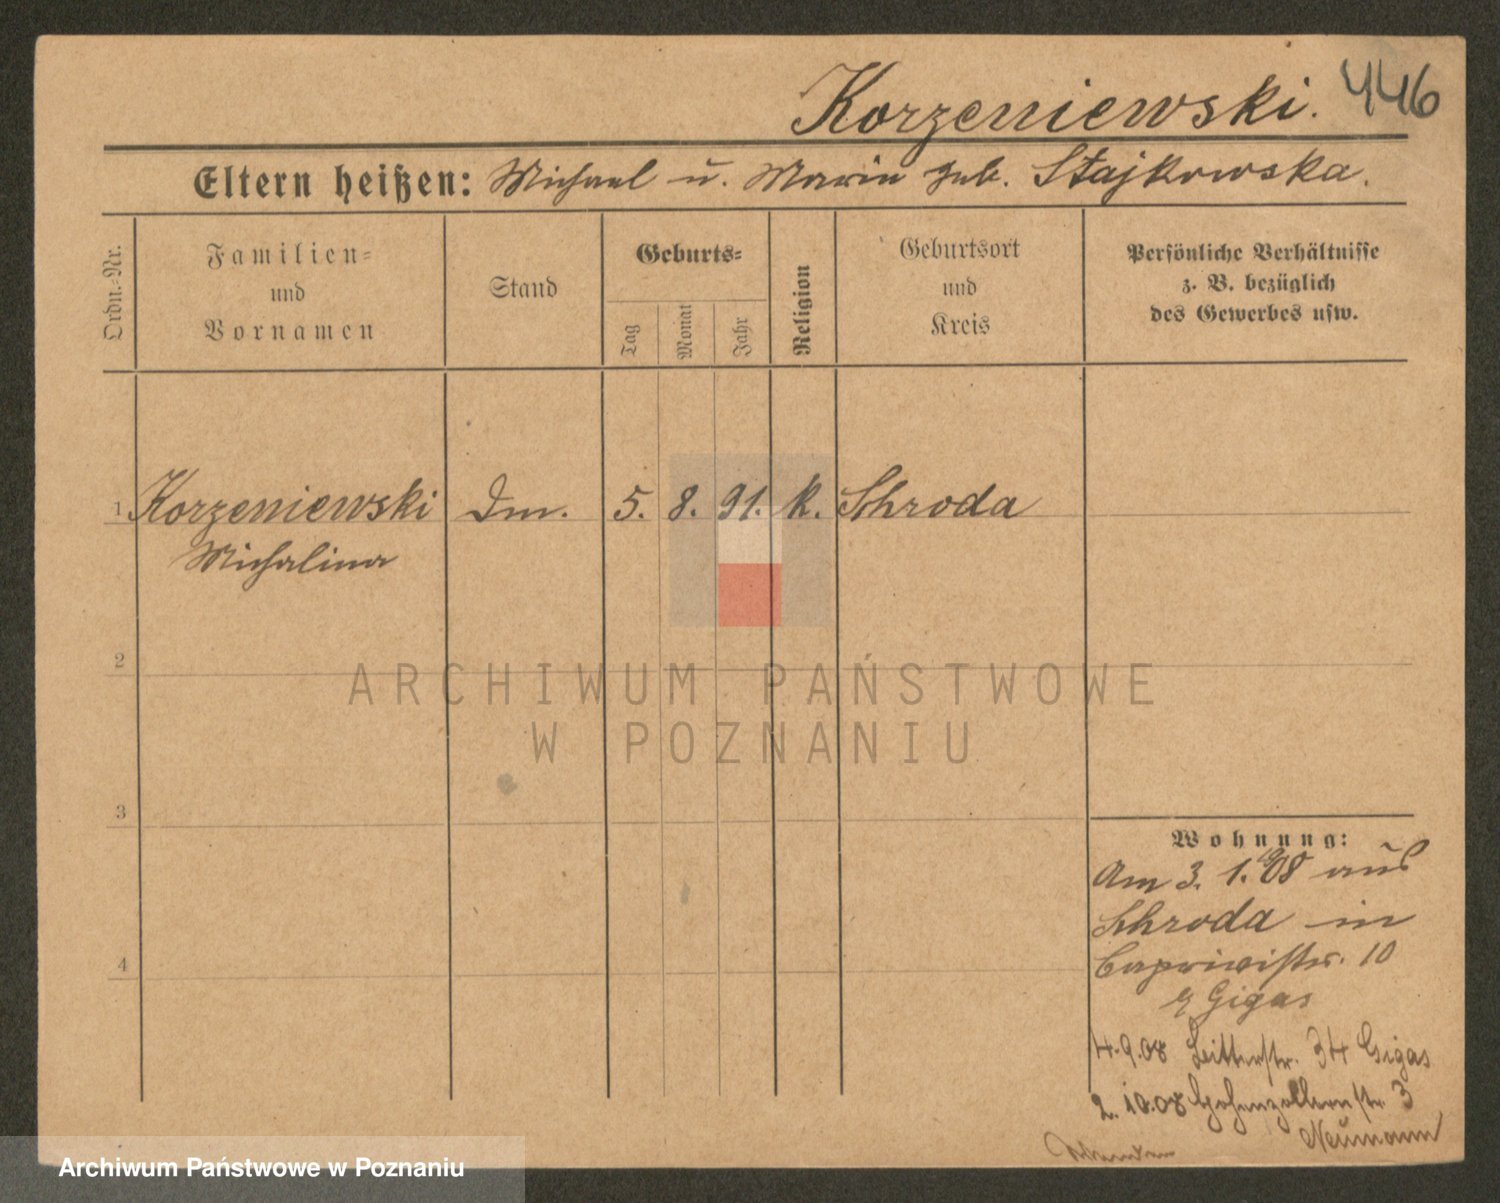 Korzeniewski. 446
Eltern heißen: Michael u. Maria geb. Stajkowska.
Ordn.-Nr.
Familien-
und
Vornamen
Stand
Geburts-
Tag
Monat
Jahr
Religion
Geburtsort
und
Kreis
Persönliche Verhältnisse
z. B. bezüglich
des Gewerbes usw.
1 Korzeniewski Dm. 5. 8. 91. k. Schroda
Michalina
2
3
4
Wohnung:
Am 3. 1. 08 aus
Schroda in
Caprivistr. 10
Gigas
4.9.08 Ritterstr. 34 Gigas
2.10.08 Hohenzollernstr. 3
Neumann
ARCHIWUM PAŃSTWOWE
W POZNANIU
Archiwum Państwowe w Poznaniu